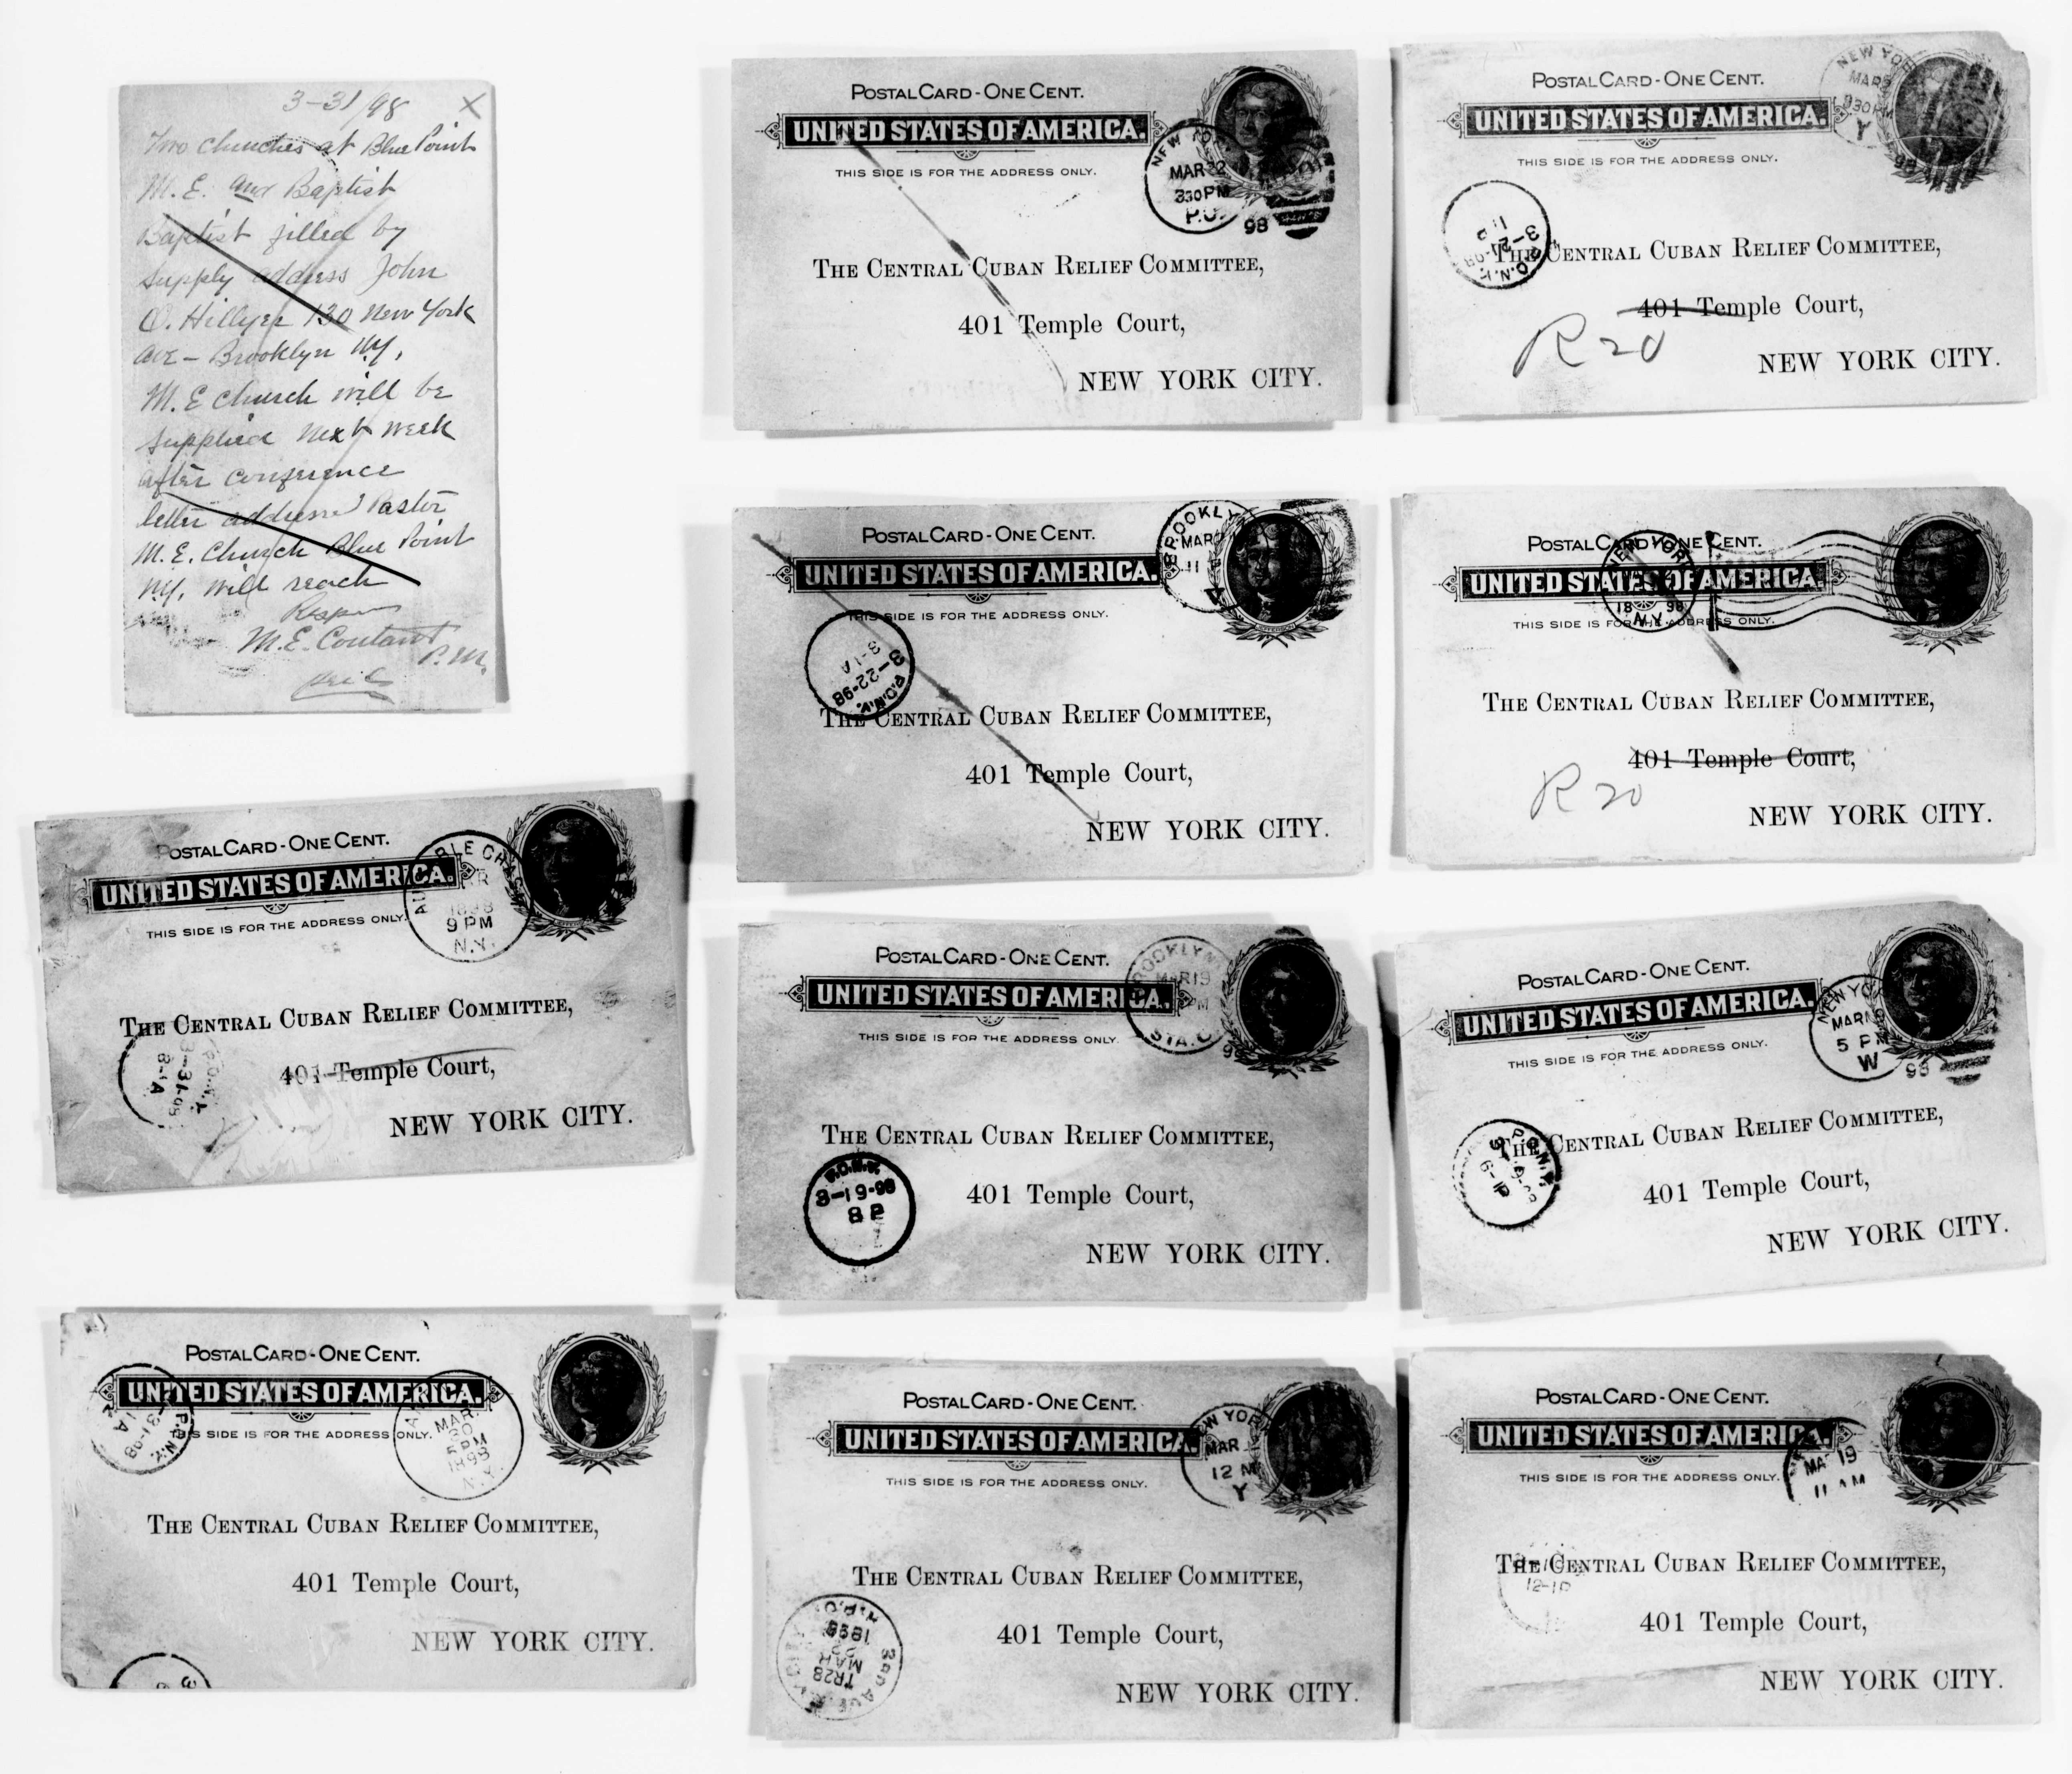 3-31/98 X
Two churches at Blue Point
M. E. and Baptist
Baptist filled by
supply address John
O. Hillyer 130 New York
ave - Brooklyn NY,
M. E church will be
supplied next week
after conference
letter addressed Pastor
M. E. Church Blue Point
NY, will reach
M. E. Coutant
P. M.
POSTAL CARD - ONE CENT.
UNITED STATES OF AMERICA.
THIS SIDE IS FOR THE ADDRESS ONLY.
BLE CHAC
1898
9 PM
N.Y.
THE CENTRAL CUBAN RELIEF COMMITTEE,
P.O.N.Y.
3-31-98
8-1A
401 Temple Court,
NEW YORK CITY.
POSTAL CARD - ONE CENT.
UNITED STATES OF AMERICA.
S SIDE IS FOR THE ADDRESS ONLY.
P.O.N.Y.
3-31-98
1A
MAR.
30
5 PM
1898
N.Y.
THE CENTRAL CUBAN RELIEF COMMITTEE,
401 Temple Court,
NEW YORK CITY.
POSTAL CARD - ONE CENT.
UNITED STATES OF AMERICA.
THIS SIDE IS FOR THE ADDRESS ONLY.
NEW YO
MAR 22
330 PM
P.O.
98
THE CENTRAL CUBAN RELIEF COMMITTEE,
401 Temple Court,
NEW YORK CITY.
POSTAL CARD - ONE CENT.
UNITED STATES OF AMERICA.
THIS SIDE IS FOR THE ADDRESS ONLY.
BROOKLY
MAR
11
V
P.O.N.Y.
3-22-98
3-1A
THE CENTRAL CUBAN RELIEF COMMITTEE,
401 Temple Court,
NEW YORK CITY.
POSTAL CARD - ONE CENT.
UNITED STATES OF AMERICA.
THIS SIDE IS FOR THE ADDRESS ONLY.
BROOKLYN
MAR 19
PM
STA. C
98
THE CENTRAL CUBAN RELIEF COMMITTEE,
P.O.N.Y.
3-19-98
8 P
401 Temple Court,
NEW YORK CITY.
POSTAL CARD - ONE CENT.
UNITED STATES OF AMERICA.
THIS SIDE IS FOR THE ADDRESS ONLY.
EW YOR
MAR
12 M
Y
THE CENTRAL CUBAN RELIEF COMMITTEE,
TR28
MAR
1898
401 Temple Court,
NEW YORK CITY.
POSTAL CARD - ONE CENT.
UNITED STATES OF AMERICA.
THIS SIDE IS FOR THE ADDRESS ONLY.
NEW YOR
MAR
930 PM
Y
98
P.O.N.Y.
3-21-98
11 P
THE CENTRAL CUBAN RELIEF COMMITTEE,
401 Temple Court,
R 20
NEW YORK CITY.
POSTAL CARD - ONE CENT.
UNITED STATES OF AMERICA
THIS SIDE IS FOR THE ADDRESS ONLY.
NEW YORK
1898
N.Y.
THE CENTRAL CUBAN RELIEF COMMITTEE,
401 Temple Court,
R 20
NEW YORK CITY.
POSTAL CARD - ONE CENT.
UNITED STATES OF AMERICA.
THIS SIDE IS FOR THE ADDRESS ONLY.
NEW YO
MAR
5 PM
W
98
P.O.N.Y.
6-1P
THE CENTRAL CUBAN RELIEF COMMITTEE,
401 Temple Court,
NEW YORK CITY.
POSTAL CARD - ONE CENT.
UNITED STATES OF AMERICA.
THIS SIDE IS FOR THE ADDRESS ONLY.
MAR 19
11 AM
THE CENTRAL CUBAN RELIEF COMMITTEE,
12-1P
401 Temple Court,
NEW YORK CITY.